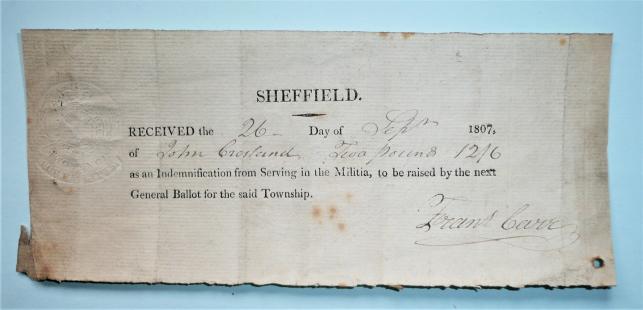 SHEFFIELD.
RECEIVED the 26 Day of Sepr 1807,
of John Crosland Two pounds 12/6
as an Indemnification from Serving in the Militia, to be raised by the next
General Ballot for the said Township.
Frans Carr